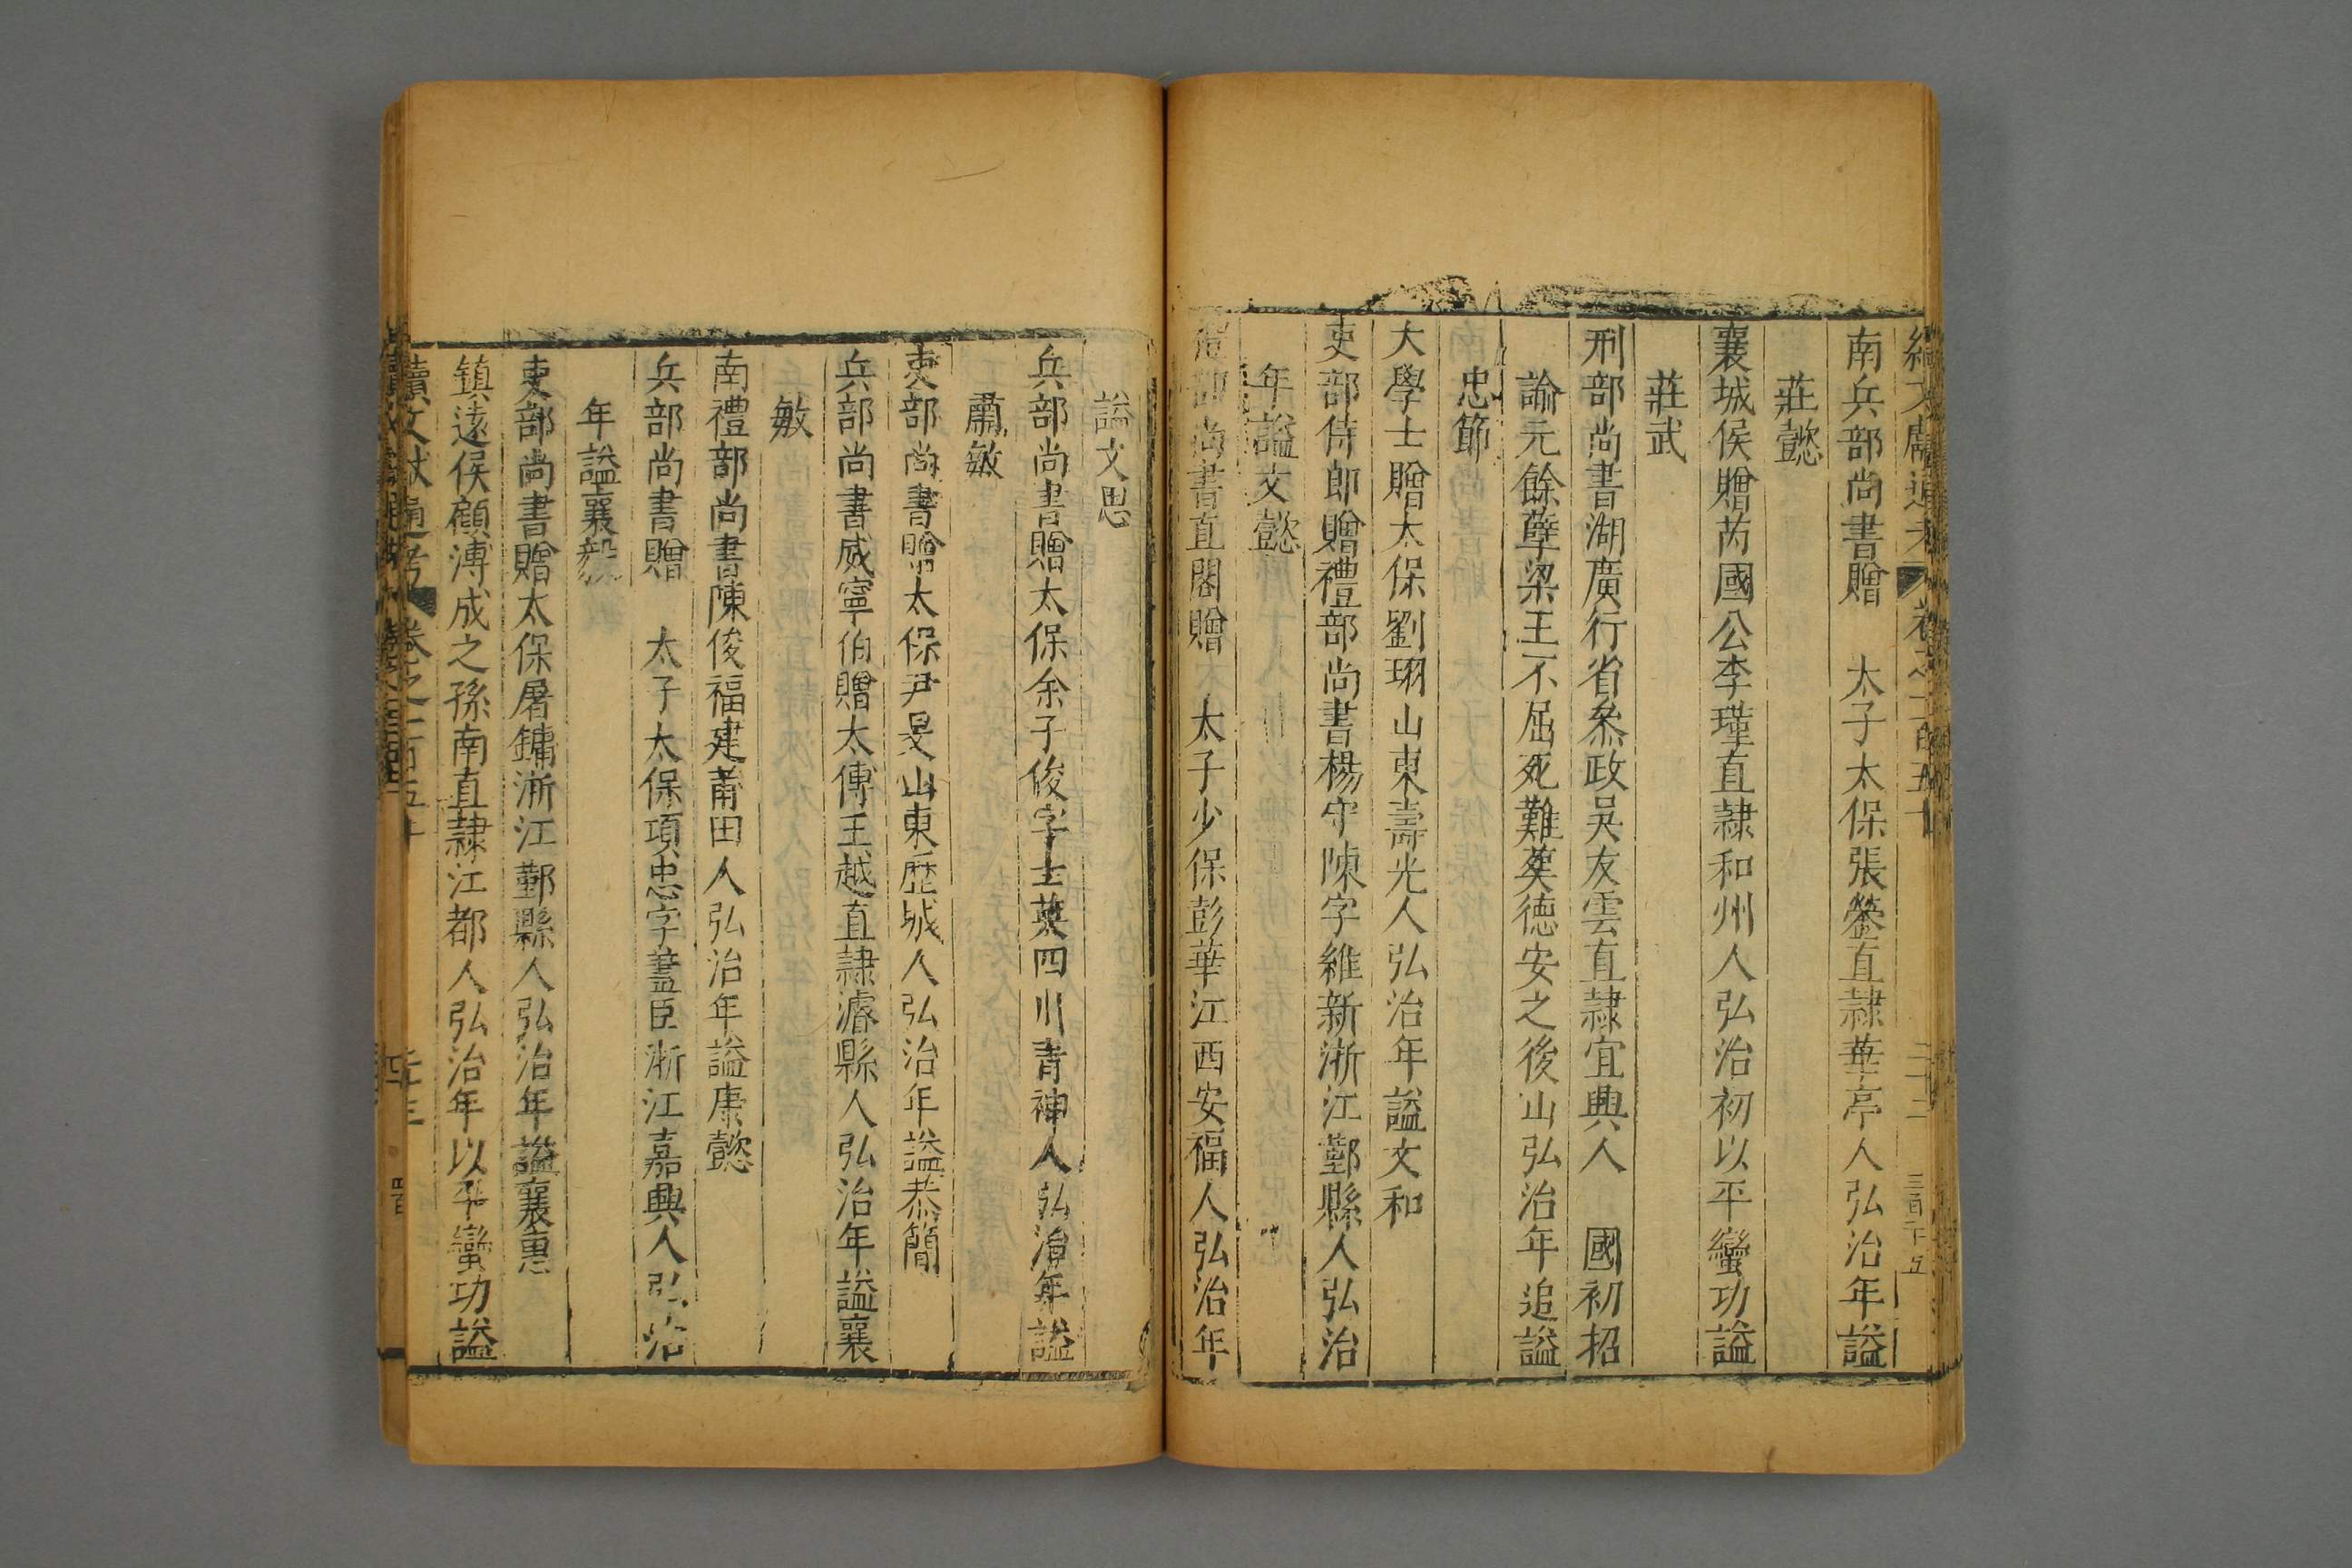 南兵部尚書贈　太子太保張鎣直隷華亭人弘治年謚
莊懿
襄城侯贈芮國公李瑾直隷和州人弘治初以平蠻功謚
莊武
刑部尚書湖廣行省叅政吳友雲直隷宜興人　國初招
諭元餘孽梁王不屈死難葬德安之後山弘治年追謚
忠節
大學士贈太保劉珝山東壽光人弘治年謚文和
吏部侍郎贈禮部尚書楊守陳字維新浙江鄞縣人弘治
年謚文懿
禮部尚書直閣贈　太子少保彭華江西安福人弘治年
謚文思
兵部尚書贈太保余子俊字士英四川青神人弘治年謚
肅敏
吏部尚書贈太保尹旻山東歷城人弘治年謚恭簡
兵部尚書威寧伯贈太傅王越直隷濬縣人弘治年謚襄
敏
南禮部尚書陳俊福建莆田人弘治年謚康懿
兵部尚書贈　太子太保項忠字藎臣浙江嘉興人弘治
年謚襄毅
吏部尚書贈太保屠鏞浙江鄞縣人弘治年謚襄惠
鎮遠侯顧溥成之孫南直隷江都人弘治年以平蠻功謚
續文獻通考　卷之一百五十